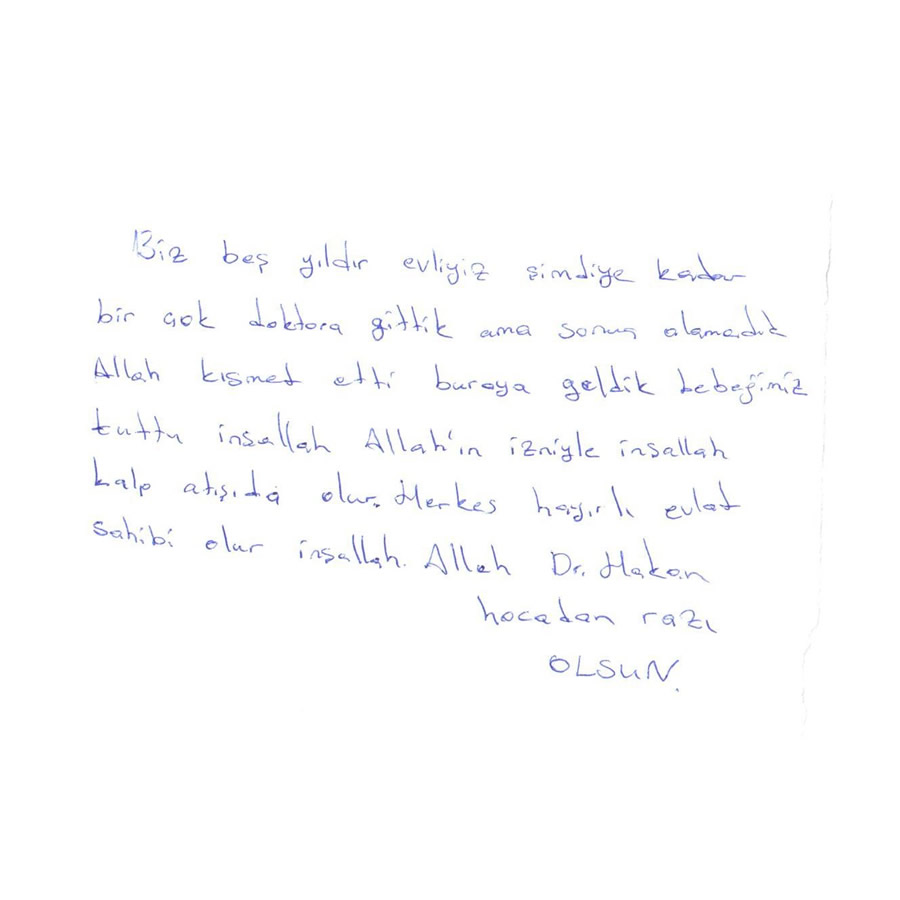 Biz beş yıldır evliyiz şimdiye kadar
bir çok doktora gittik ama sonuç alamadık
Allah kısmet etti buraya geldik bebeğimiz
tuttu inşallah Allah'ın izniyle inşallah
kalp atışıda olur. Herkes hayırlı evlat
sahibi olur inşallah. Allah Dr. Hakan
hocadan razı
OLSUN.